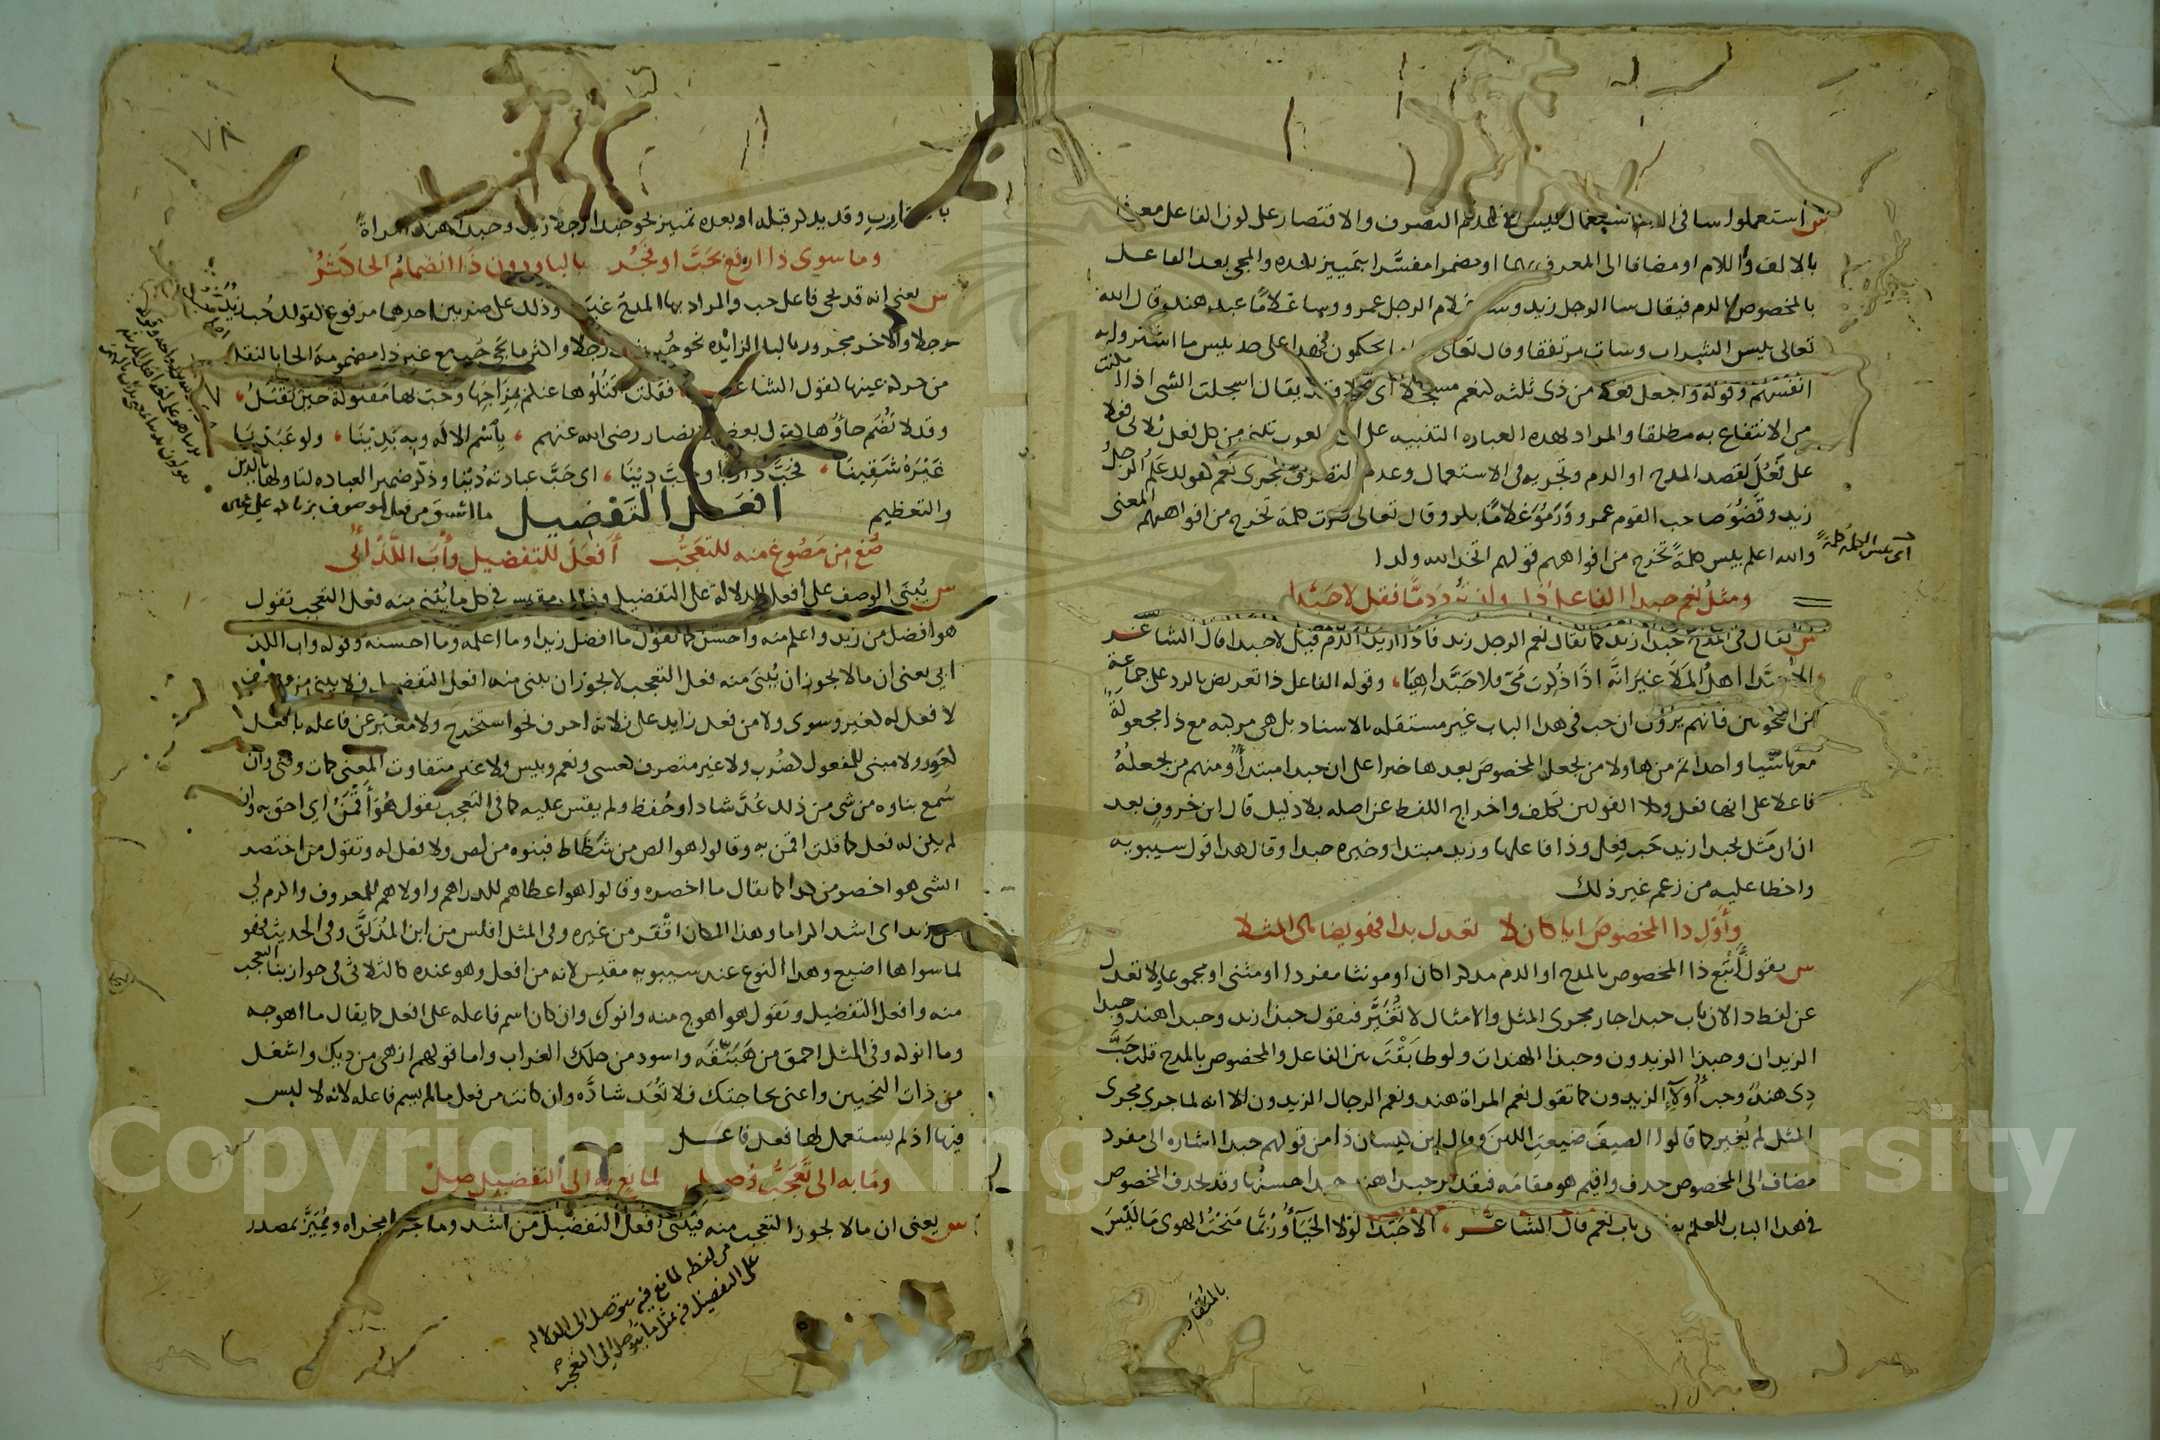 ش استعملوا سا في الذم استعمال بيس في عدم التصرف والاقتصار على كون الفاعل معرفا
بالالف واللام او مضافا الى المعرف بهما او مضمرا مفسرا بتمييز بعده والمجي بعد الفاعل
بالمخصوص بالذم فيقال سا الرجل زيد وسا غلام الرجل عمرو وسا غلاما عبد هند وقال الله
تعالى بيس الشراب وسات مرتفقا وقال تعالى سا ما يحكمون فهذا على حد بيس ما اشتروا به
انفسهم وقوله واجعل فعلا من ذي ثلثه كنعم مسجلا اي مطلقا يقال اسجلت الشي اذا امكنت
من الانتفاع به مطلقا والمراد بهذه العباره التنبيه على ان العرب تبني من كل فعل ثلاثي فعلا
على فَعُلَ لقصد المدح او الذم وتجريه في الاستعمال وعدم التصرف مجرى نعم كقولك عَلُمَ الرجلُ
زيد وقَضُوَ صاحب القوم عمرو ورَمُوَ غلامًا بكر وقال تعالى كبرت كلمة تخرج من افواههم المعنى
والله اعلم بيس كلمةً تخرج من افواههم قولهم اتخذ الله ولدا
اي بيس الكلمة كلمةً
ومثلُ نعم حبذا الفاعل ذا وان تُرد ذمًّا فقل لا حبذا
ش يقال في المدح حبذا زيد كما يقال نعم الرجل زيد فاذا اريد الذم قيل لا حبذا قال الشاعر
الا حبذا اهلُ الملا غيرَ انَّه اذا ذُكرت ميّ فلا حبَّذا هيا، وقوله الفاعل ذا تعريض بالرد على جماعة
من النحويين فانهم يرون ان حب في هذا الباب غير مستقله بالاسناد بل هي مركبه مع ذا مجعولةً
معها شيا واحدا ثم من هاولا من يجعل المخصوص بعدها خبرا على ان حبذا مبتدأ ومنهم من يجعله
فاعلا على انها فعل وكلا القولين تكلف واخراج اللفظ عن اصله بلا دليل قال ابن خروف بعد
ان مثل بحبذا زيد حَبَّ فِعل وذا فاعلها وزيد مبتدا وخبره حبذا وقال هذا قول سيبويه
واخطا عليه من زعم غير ذلك
وأَوْلِ ذا المخصوصَ ايا كان لا تعدل بذا فهو يضاهي المثلا
ش يقول أتبع ذا المخصوص بالمدح او الذم مذكرا كان او مونثا مفردا او مثنى او مجموعا ولا تعدل
عن لفظ ذا لان باب حبذا جار مجرى المثل والامثال لا تُغَيَّر فتقول حبذا زيد وحبذا هند وحبذا
الزيدان وحبذا الزيدون وحبذا الهندات ولو طابَقْتَ بين الفاعل والمخصوص بالمدح قلت حَبَّ
ذِي هندُ وحب أُولآءِ الزيدون كما تقول نعم المراة هند ونعم الرجال الزيدون الا انه لما جرى مجرى
المثل لم يُغير كما قالوا الصيفَ ضيعتِ اللبنَ وقال ابن كيسان ذا من قولهم حبذا اشاره الى مفرد
مضاف الى المخصوص حذف واقيم هو مقامه فتقدير حبذا هند حبذا حسنها وقد يحذف المخصوص
في هذا الباب للعلم به كما في باب نعم قال الشاعر، الا حبذا لولا الحيآءُ ورُبَّما مَنَحْتُ الهوى مَا لَيْسَ
بالمتقارب
٧٨
بالمتقارب وقد يذكر قبله او بعده تمييز نحو حبذا رجلا زيد وحبذا هند امراةً
وما سوى ذا ارفع بحَبَّ او فجُر بالبا ودون ذا انضمامُ الحا كَثُرْ
ش يعني انه قد يجي فاعل حب والمراد بها المدح غير ذا وذلك على ضربين احدهما مرفوع كقولك حُب زيد
رجلا والاخر مجرور بالبا الزايده نحو حُب بزيد رجلا واكثر ما تجي حُب مع غير ذا مضمومة الحا بالنقل
من حركه عينها كقول الشاعر فقلت اقتُلُوها عنكم بمِزاجِها وحُبَّ بها مقتولةً حينَ تُقتَلُ،
وقد لا تُضَم حاؤها كقول بعض الانصار رضي الله عنهم، بِاسْمِ الاله وبه بَدِيْنَا، ولو عَبَدْنَا
غَيْرَهُ شَقِيْنَا، فحَبَّذا رَبًّا وحَبَّ دِيْنَا، اي حَبَّ عبادته دُيْنًا وذكر ضمير العباده لتاولها بالدين
والتعظيم
افعل التفضيل
ما اشتق من فعل الموصوف بزياده على غيره
صُغ من مَصُوغ منه للتعَجُّب أَفعَلَ للتفضيل وأْبَ اللَّذْ أُبي
ش يُبنى الوصف على افعل للدلالة على التفضيل وذلك مقيس في كل ما يُبنى منه فعل التعجب تقول
هو افضل من زيد واعلم منه واحسن كما تقول ما افضل زيدا وما اعلمه وما احسنه وقوله واب اللذ
ابي يعني ان ما لا يجوز ان يُبنَى منه فعل التعجب لا يجوز ان يبنى منه افعل التفضيل فلا يبنى من وصف
لا فعل له كغير وسوى ولا من فعل زايد على ثلاثه احرف نحو استخرج ولا معبّر عن فاعله بافعل
كعَوِر ولا مبني للمفعول كضُرِب ولا غير متصرف كعسى ونعم وبيس ولا غير متفاوت المعنى كمات وفني وان
سُمع بناوه من شي من ذلك عُدَّ شاذا وحُفظ ولم يقس عليه كما في التعجب تقول هُوَ أَقْمَنُ اي احق به وان
لم يكن له فعل كما قلت اقمن به وقالوا هو الص من شظاظ فبنوه من لص ولا فعل له وتقول من اختصر
الشي هو اخصر من كذا كما يقال ما اخصره وقالوا هو اعطاهم للدراهم واولاهم للمعروف واكرم لي
من زيد اي اشد اكراما وهذا المكان اقْفَر من غيره وفي المثل افلس من ابن المُذَلَّق وفي الحديث فهو
لما سواها اضيع وهذا النوع عند سيبويه مقيس لانه من افعل وهو عنده كالثلاثي في جواز بنا التعجب
منه وافعل التفضيل وتقول هو اهوج منه وانوك وان كان اسم فاعله على افعل كما يقال ما اهوجه
وما انوكه وفي المثل احمق من هَبَنَّقَه واسود من حلك الغراب واما قولهم ازهى من ديك واشغل
من ذات النحيين واعنى بحاجتك فلا تُعَد شاذَّه وان كانت من فعل ما لم يسم فاعله لانه لا لبس
فيها اذ لم يستعمل لها فعل فاعل
ومَا به الى تَعَجُّبٍ وُصِل لمانعٍ به الى التفضيل صِلْ
ش يعني ان ما لا يجوز التعجب منه فيبنى افعل التفضيل من اشد وما جرى مجراه ويُمَيَّز بمصدر
من لفظه لمانع فيه يتوصل الى الدلاله
على التفضيل فيه بمثل ما يتوصل الى التعجب
Copyright © King Saud University